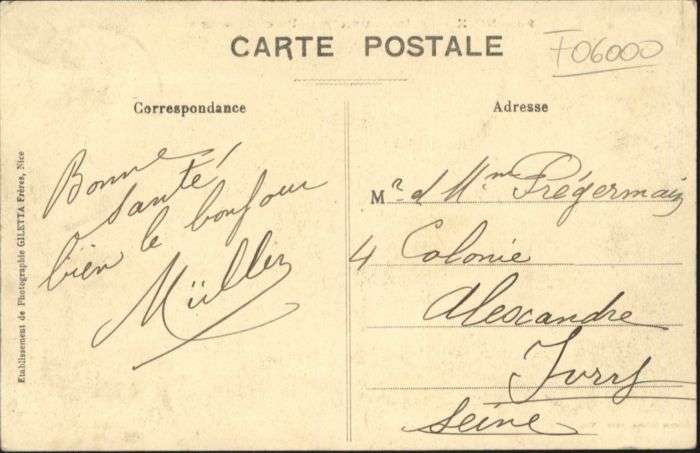 CARTE POSTALE
F06000
Correspondance
Adresse
Bonne
Santé,
bien le bonjour
Müller
Mr. et Mme Prégermain
4 Colonie
Alexandre
Ivry
Seine
Etablissement de Photographie GILETTA Frères, Nice